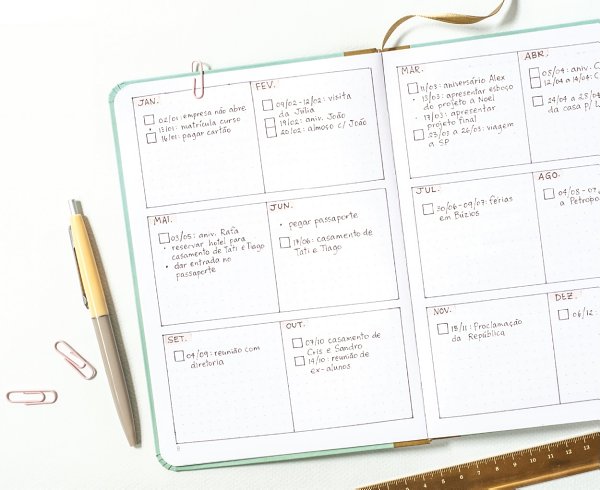 JAN.
02/01: empresa não abre
13/01: matrícula curso
16/01: pagar cartão
FEV.
09/02-12/02: visita
da Júlia
19/02: aniv. João
20/02: almoço c/ João
MAR.
11/03: aniversário Alex
13/03: apresentar esboço
do projeto a Noel
17/03: apresentar
projeto final
23/03 a 26/03: viagem
a SP
ABR.
05/04: aniv.
12/04 a 14/04:
24/04 a 25/04
da casa p/
MAI.
03/05: aniv. Rafa
reservar hotel para
casamento de Tati e Tiago
dar entrada no
passaporte
JUN.
pegar passaporte
17/06: casamento de
Tati e Tiago
JUL.
30/06-09/07: férias
em Búzios
AGO.
04/08-07/
a Petrópo
SET.
04/09: reunião com
diretoria
OUT.
07/10 casamento de
Cris e Sandro
14/10: reunião de
ex-alunos
NOV.
15/11: Proclamação
da República
DEZ.
06/12: